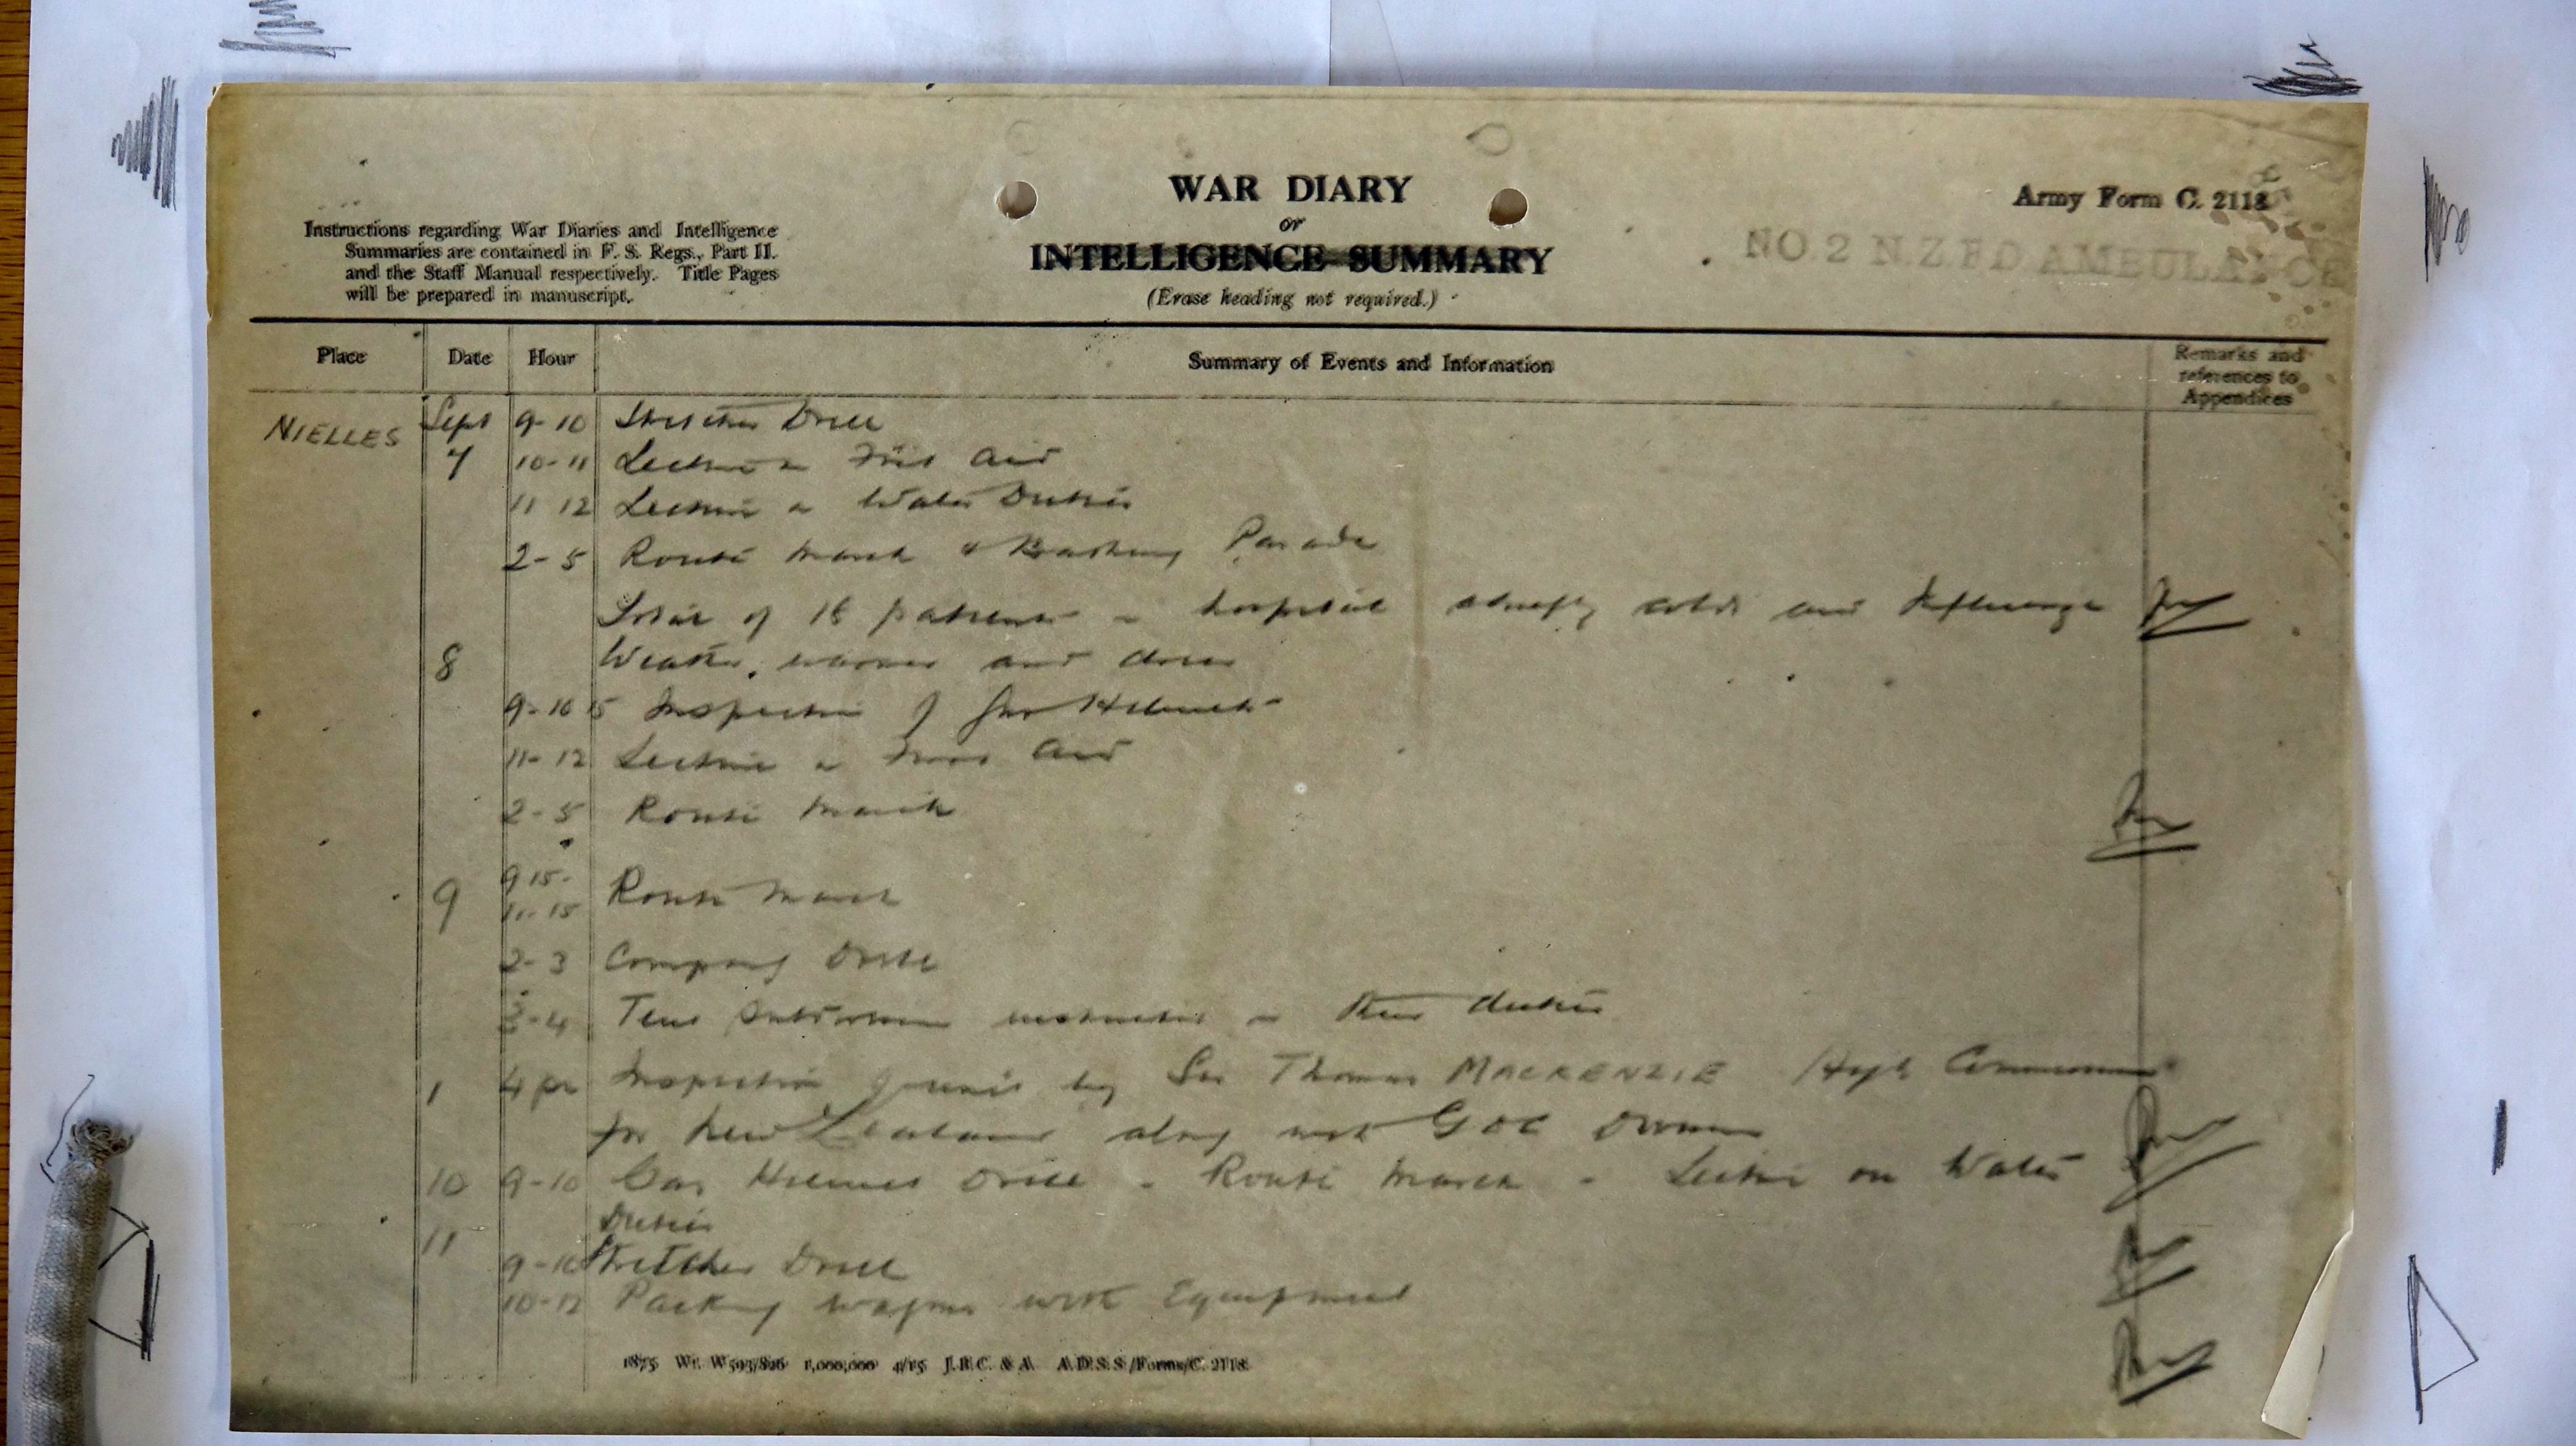 WAR DIARY
or
INTELLIGENCE SUMMARY
(Erase heading not required.)
Army Form C. 2118
NO. 2 N.Z FD AMBULANCE
Instructions regarding War Diaries and Intelligence
Summaries are contained in F. S. Regs., Part II.
and the Staff Manual respectively. Title Pages
will be prepared in manuscript.
Place Date Hour Summary of Events and Information Remarks and references to Appendices
NIELLES Sept 9-10 Stretcher Drill
7 10-11 Lecture on First Aid
11 12 Lecture on Water Duties
2-5 Route March & Bathing Parade
Total of 18 patients in hospital chiefly colds and Influenza
8 Weather, warm and
9-10 15 Inspection of Gas Helmets
11-12 Lecture on First Aid
2-5 Route March
9 9 15-
11-15 Route March
2-3 Company Drill
3-4 Tent Subdivision instruction in their duties
4 pm Inspection of unit by Sir Thomas MACKENZIE High Commissioner
for New Zealand along with GOC Division
10 9-10 Gas Helmet Drill - Route March - Lecture on Water
Duties
11
9-10 Stretcher Drill
10-12 Packing wagons with Equipment
1875 Wt. W593/826 1,000,000 4/15 J.B.C. & A. A.D.S.S./Forms/C. 2118.